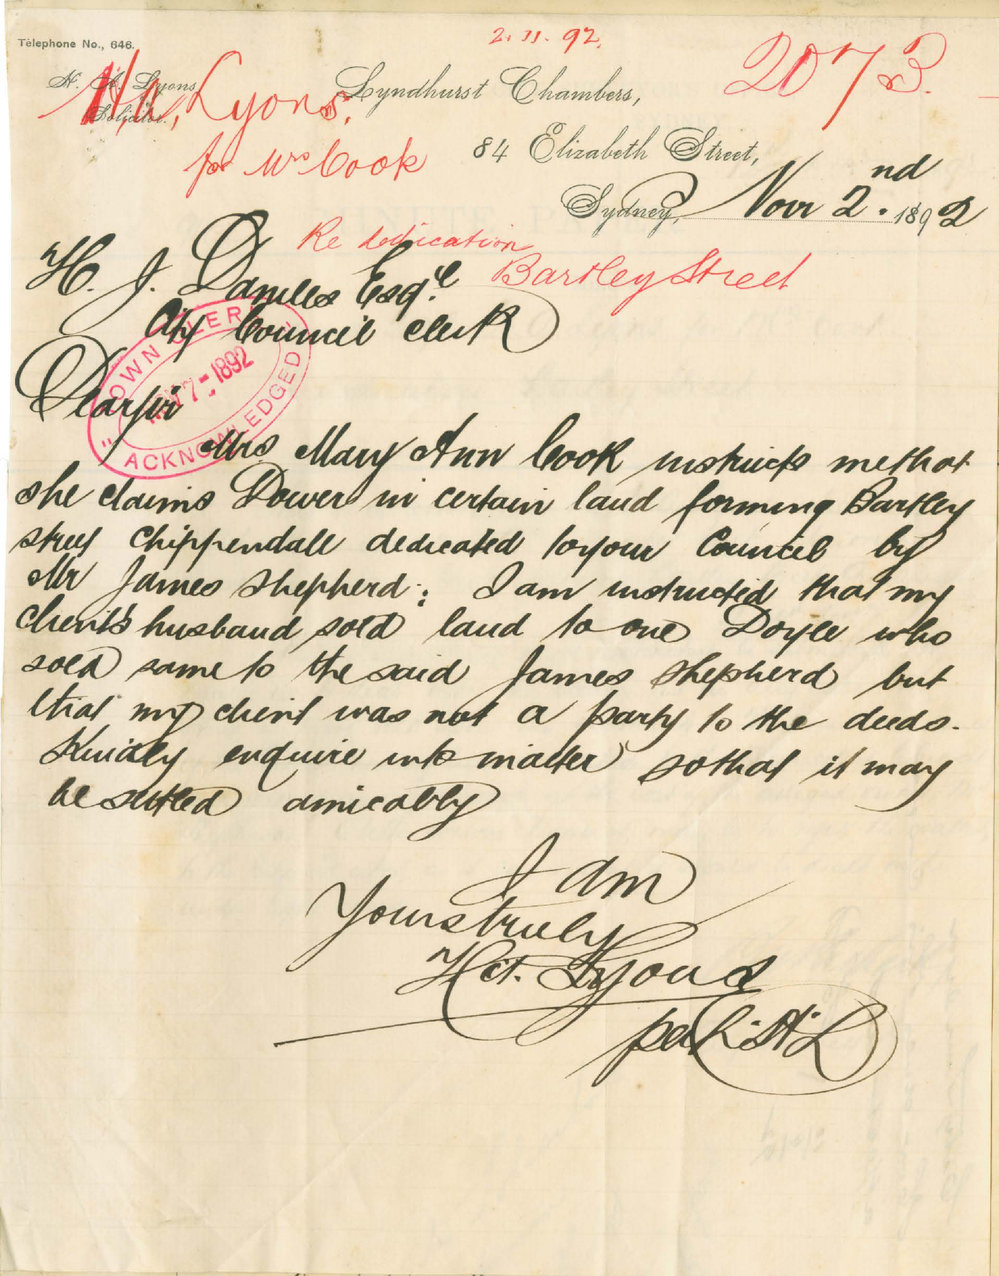 Telephone No., 646.
2. 11. 92.
2073.
H. A. Lyons
Solicitor.
H A, Lyons,
for Mrs Cook
Lyndhurst Chambers,
84 Elizabeth Street,
Sydney, Novr 2nd. 1892
Re dedication
Bartley Street
H. J. Daniels Esqre
City Council Clerk
TOWN CLERK
7 - 1892
ACKNOWLEDGED
Dear Sir
Mrs Mary Ann Cook instructs me that
she claims Dower in certain land forming Bartley
street Chippendall dedicated to your Council by
Mr James Shepherd: I am instructed that my
client's husband sold land to one Doyle who
sold same to the said James Shepherd but
that my client was not a party to the deeds.
Kindly enquire into matter so that it may
be settled amicably
I am
Yours truly
H. A. Lyons
per